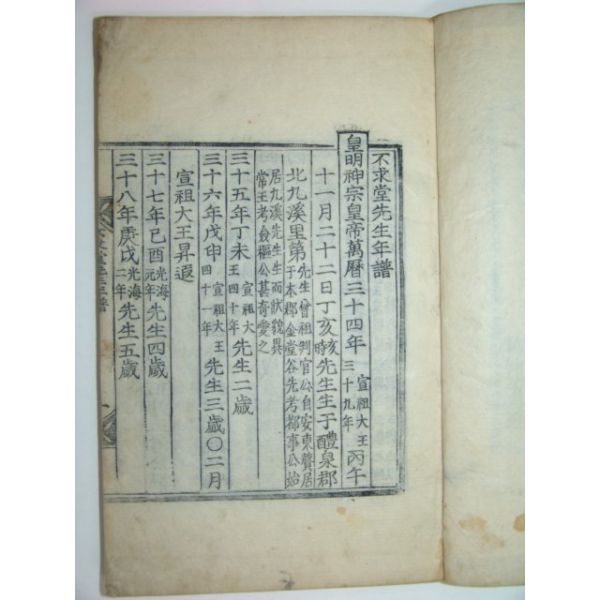 不求堂先生年譜
皇明神宗皇帝萬曆三十四年 宣祖大王三十九年 丙午
十一月二十二日丁亥亥時先生生于醴泉郡
北九溪里第先生曾祖判官公自安東贅居于本郡金堂谷先考都事公始
居九溪先生生而狀貌異常王考僉樞公甚奇愛之
三十五年丁未 宣祖大王四十年 先生二歲
三十六年戊申 宣祖大王四十一年 先生三歲〇二月
宣祖大王昇遐
三十七年己酉 光海元年 先生四歲
三十八年庚戌 光海二年 先生五歲